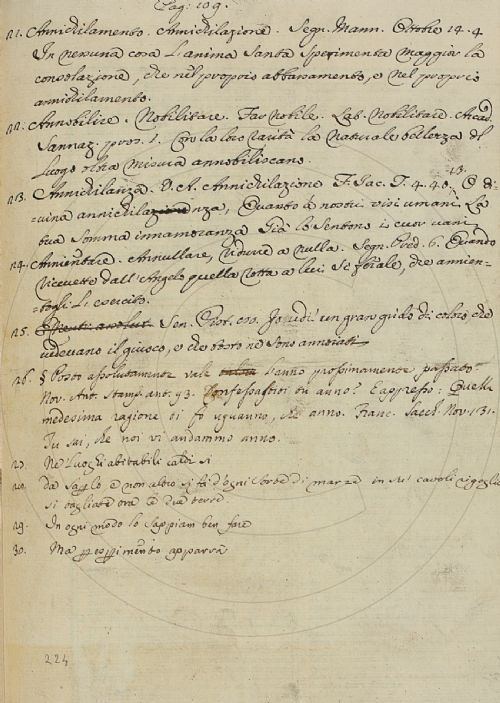 Pag: 109.
21. Annichilamento. Annichilazione. Segn. Mann. Ottobre 14. 4
In nessuna cosa L'anima Santa Sperimenta maggior la
consolazione, che nel proprio abbassamento, e nel proprio
annichilamento.
22. Annobilire. Nobilitare. Far nobile. Lat. Nobilitare. Arcad.
Sannaz. pros. 1. Con la loro rarità la naturale bellezza del
Luogo oltra misura annobiliscano.
23. Annichilanza. V. A. Annichilazione F. Jac. T. 4. 40. 13. O di-
vina annichilanza, Quanto a nostri visi umani. La
tua somma innamoranza Già lo Sentono i cuor vani
24. Annientare. Annullare, ridurre a nulla. Segn. Pred. 6. Quando
ricevette dall'Angelo quella rotta a lui sì fatale, che annien-
-togli L'esercito.
25. Sen. Pist. Io udii un gran grido di coloro, che
vedevano il giuoco, e
26. § Posto assolutamente vale l'anno prossimamente passato.
Nov. Ant. Stamp. ant. 93. Confessastiti tu anno? E appresso: Quella
medesima ragione si fo uguanno, che anno. Franc. Sacch. Nov. 131.
Tu sai, che noi vi andammo anno.
27. Ne' Luoghi abitabili caldi si
28. da e non altro si fa d'ogni sorte di marze in su' cavoli
si tagliate ora le due terze
29. In ogni modo lo sappiam ben fare
30. Ma apparrà
224